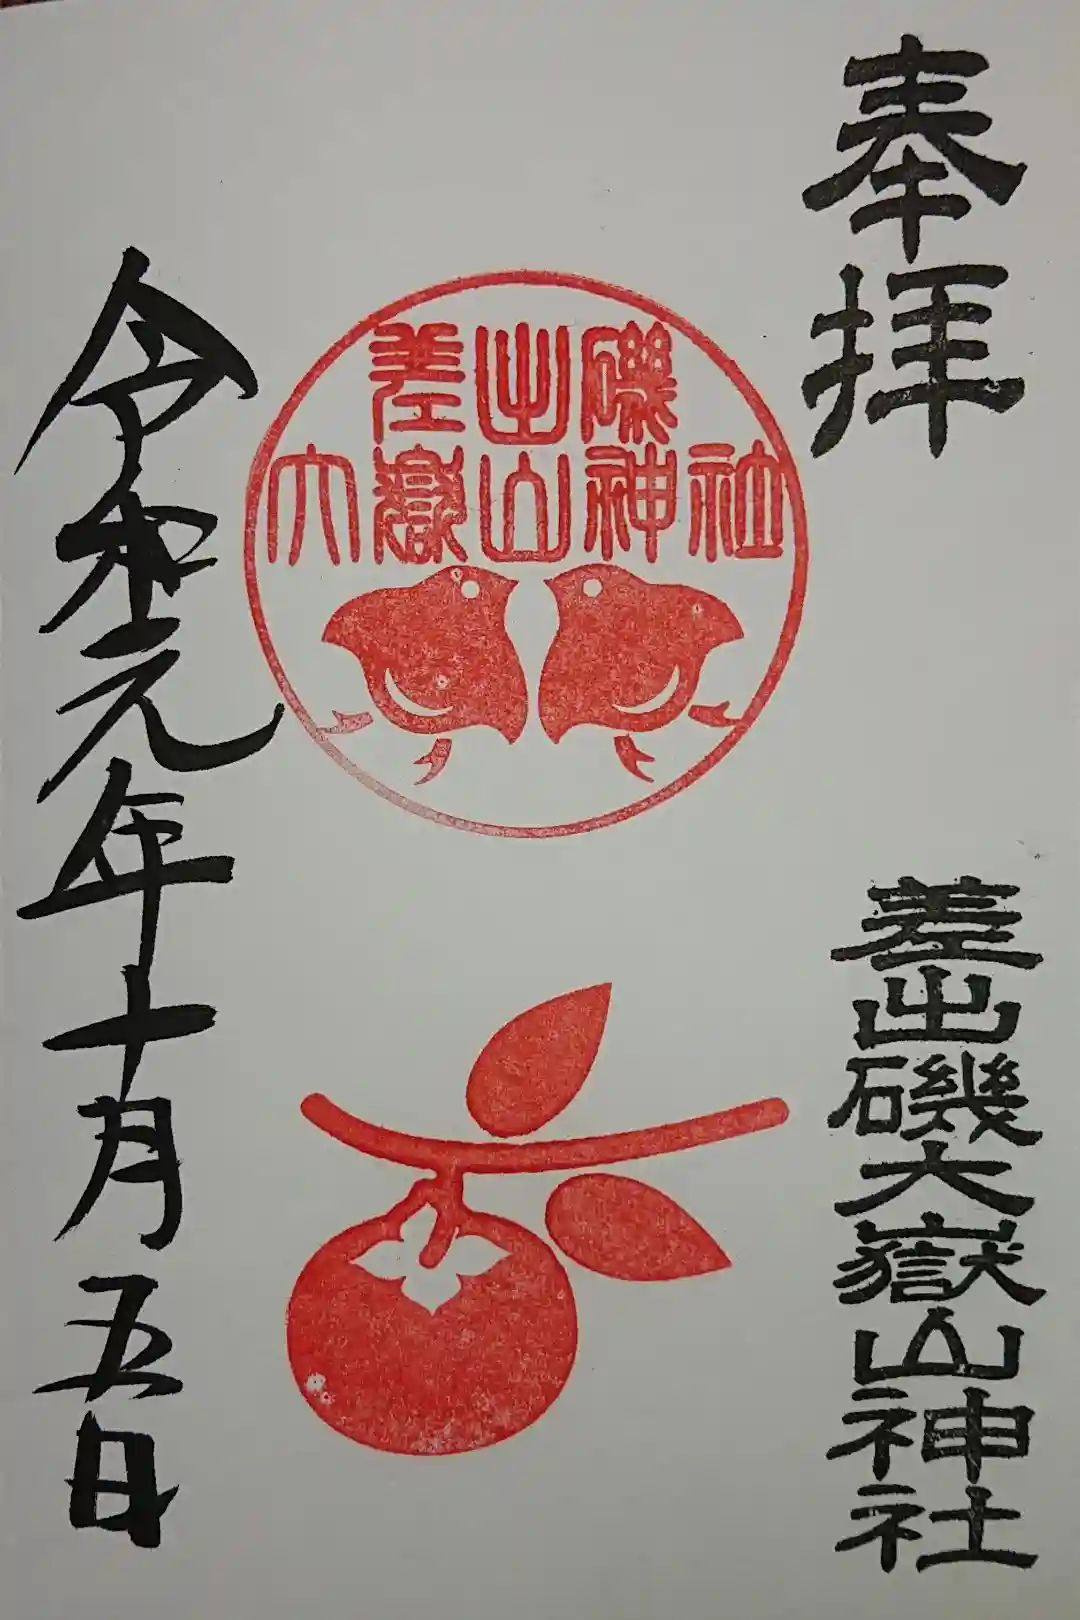 奉拝
差出磯大嶽山神社
差出磯
大嶽山神社
令和元年十月五日